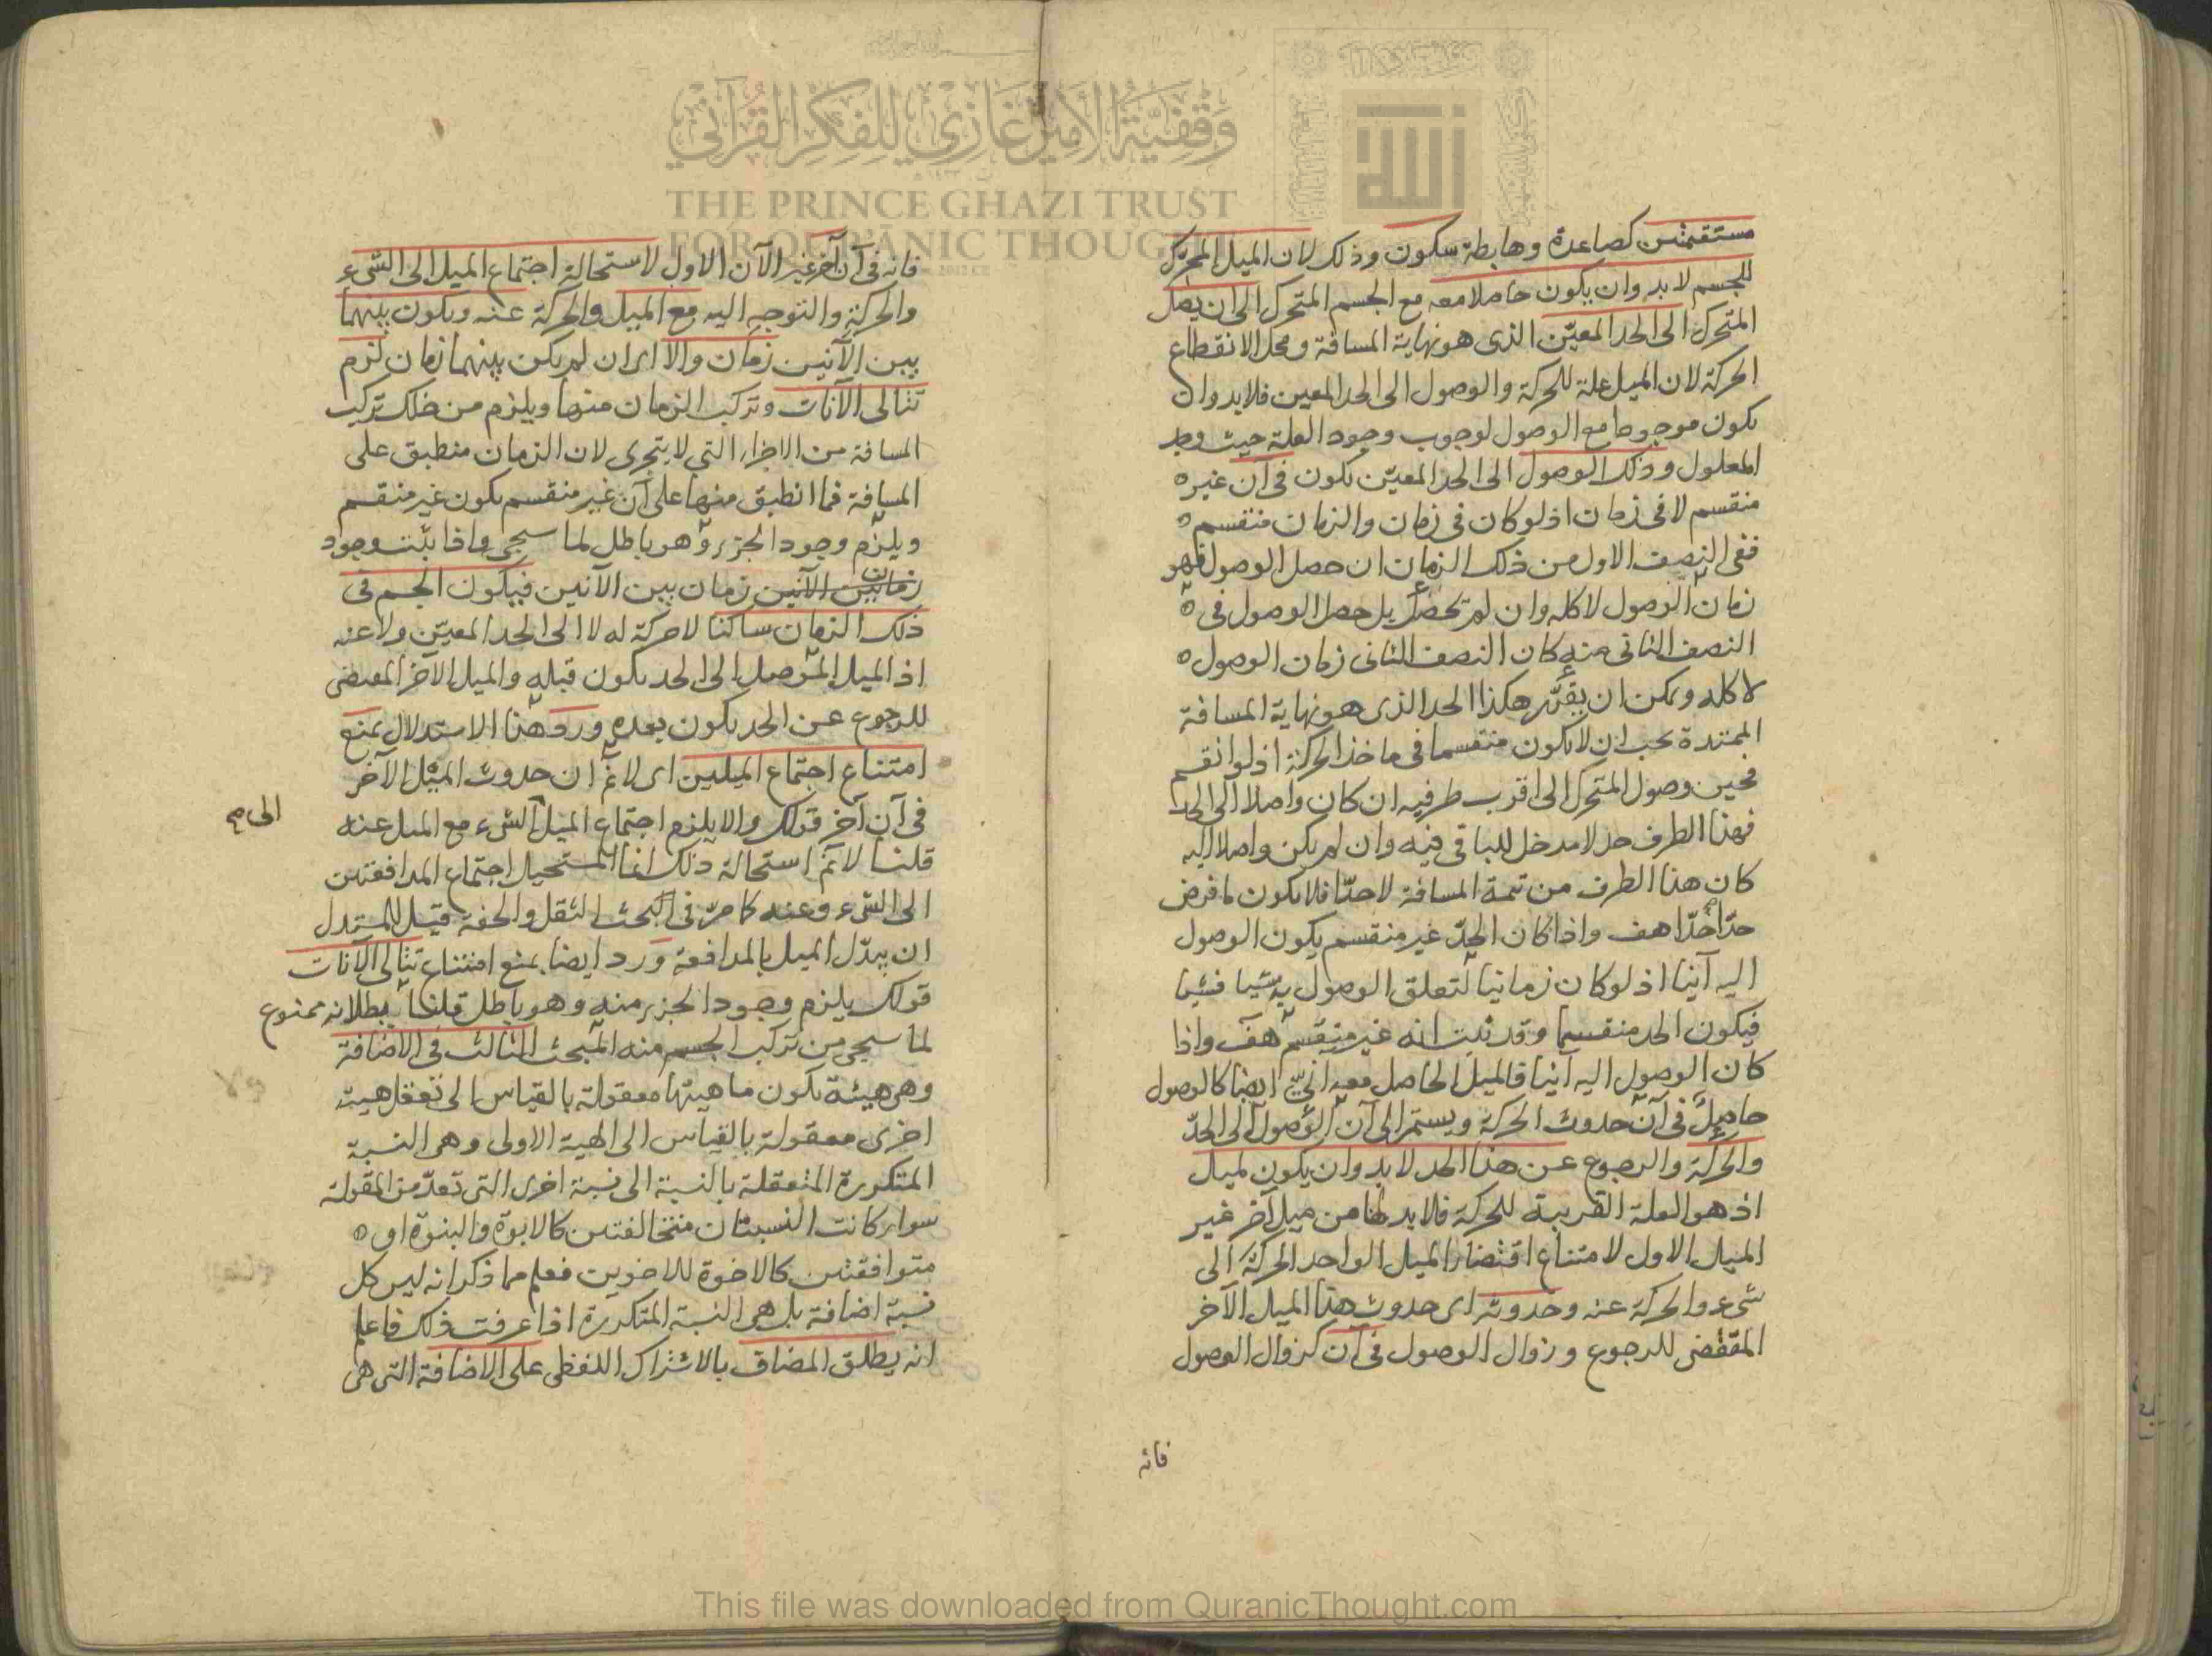 مستقيمتين كصاعدة وهابطة سكون وذلك لان الميل المحرك
للجسم لا بد وان يكون حاصلا معه مع الجسم المتحرك الى ان يصل
المتحرك الى الحد المعيّن الذى هو نهاية المسافة ومحل الانقطاع
الحركة لان الميل علة للحركة والوصول الى الحد المعين فلابد وان
يكون موجودا مع الوصول لوجوب وجود العلة حيث وجد
المعلول وذلك الوصول الى الحد المعيّن يكون فى آن غير
منقسم لا فى زمان اذ لو كان فى زمان والزمان منقسم
ففى النصف الاول من ذلك الزمان ان حصل الوصول فهو
زمان الوصول لا كله وان لم يحصل بل حصل الوصول فى
النصف الثانى منه كان النصف الثانى زمان الوصول
لا كله ويمكن ان يقرّر هكذا الحد الذى هو نهاية المسافة
الممتدة يجب ان لا يكون منقسما فى ماخذ الحركة اذ لو انقسم
فحين وصول المتحرك الى اقرب طرفيه ان كان واصلا الى الحد
فهذا الطرف حد لا مدخل للباقى فيه وان لم يكن واصلا اليه
كان هذا الطرف من تتمة المسافة لا حدّا فلا يكون ما فرض
حدّا حدّا هف واذا كان الحدّ غير منقسم يكون الوصول
اليه آنيا اذ لو كان زمانيا لتعلق الوصول به شيئا فشيئا
فيكون الحد منقسما وقد ثبت انه غير منقسم هف واذا
كان الوصول اليه آنيا فالميل الحاصل معه آنىّ ايضا كالوصول
حاصل فى آن حدوث الحركة ويستمر الى آن الوصول الى الحدّ
والحركة والرجوع عن هذا الحد لا بد وان يكون لميل
اذ هو العلة القريبة للحركة فلابد لها من ميل آخر غير
الميل الاول لامتناع اقتضاء الميل الواحد الحركة الى
شىء والحركة عنه وحدوثه اى حدوث هذا الميل الآخر
المقتضى للرجوع وزوال الوصول فى آن كزوال الوصول
فانه
فانه فى آن آخر غير الآن الاول لاستحالة اجتماع الميل الى الشىء
والحركة والتوجه اليه مع الميل والحركة عنه ويكون بينهما
بين الآنين زمان والا اى ان لم يكن بينهما زمان لزم
تتالى الآنات وتركب الزمان منها ويلزم من ذلك تركب
المسافة من الاجزاء التى لا يتجزى لان الزمان منطبق على
المسافة فما انطبق منها على آن غير منقسم يكون غير منقسم
ويلزم وجود الجزء وهو باطل لما سيجى واذا ثبت وجود
زمان بين الآنين زمان بين الآنين فيكون الجسم فى
ذلك الزمان ساكنا لا حركة له لا الى الحد المعيّن ولا عنه
اذ الميل الموصل الى الحد يكون قبله والميل الآخر المقتضى
للرجوع عن الحد يكون بعده ورد هذا الاستدلال بمنع
امتناع اجتماع الميلين اى لا نم ان حدوث الميل الآخر
فى آن آخر قولك والا يلزم اجتماع الميل الشىء مع الميل عنه
الى صح
قلنا لا نم استحالة ذلك انما المستحيل اجتماع المدافعتين
الى الشىء وعنه كما مرّ فى البحث الثقل والخفة قيل للمستدل
ان يبدّل الميل بالمدافعة ورد ايضا بمنع امتناع تتالى الآنات
قولك يلزم وجود الجزء منه وهو باطل قلنا بطلانه ممنوع
لما سيجى من تركب الجسم منه المبحث الثالث فى الاضافة
وهى هيئة تكون ماهيتها معقولة بالقياس الى تعقل هيئة
اخرى معقولة بالقياس الى الهية الاولى وهى النسبة
المتكررة المتعقلة بالنسبة الى نسبة اخرى التى تعدّ من المقولة
سواء كانت النسبتان متخالفتين كالابوة والبنوة او
متوافقتين كالاخوة للاخوين فعلم مما ذكر انه ليس كل
نسبة اضافة بل هى النسبة المتكررة اذا عرفت ذلك فاعلم
انه يطلق المضاف بالاشتراك اللفظى على الاضافة التى هى
وقفية الأمير غازي للفكر القرآني
THE PRINCE GHAZI TRUST
FOR QUR'ĀNIC THOUGHT
This file was downloaded from QuranicThought.com